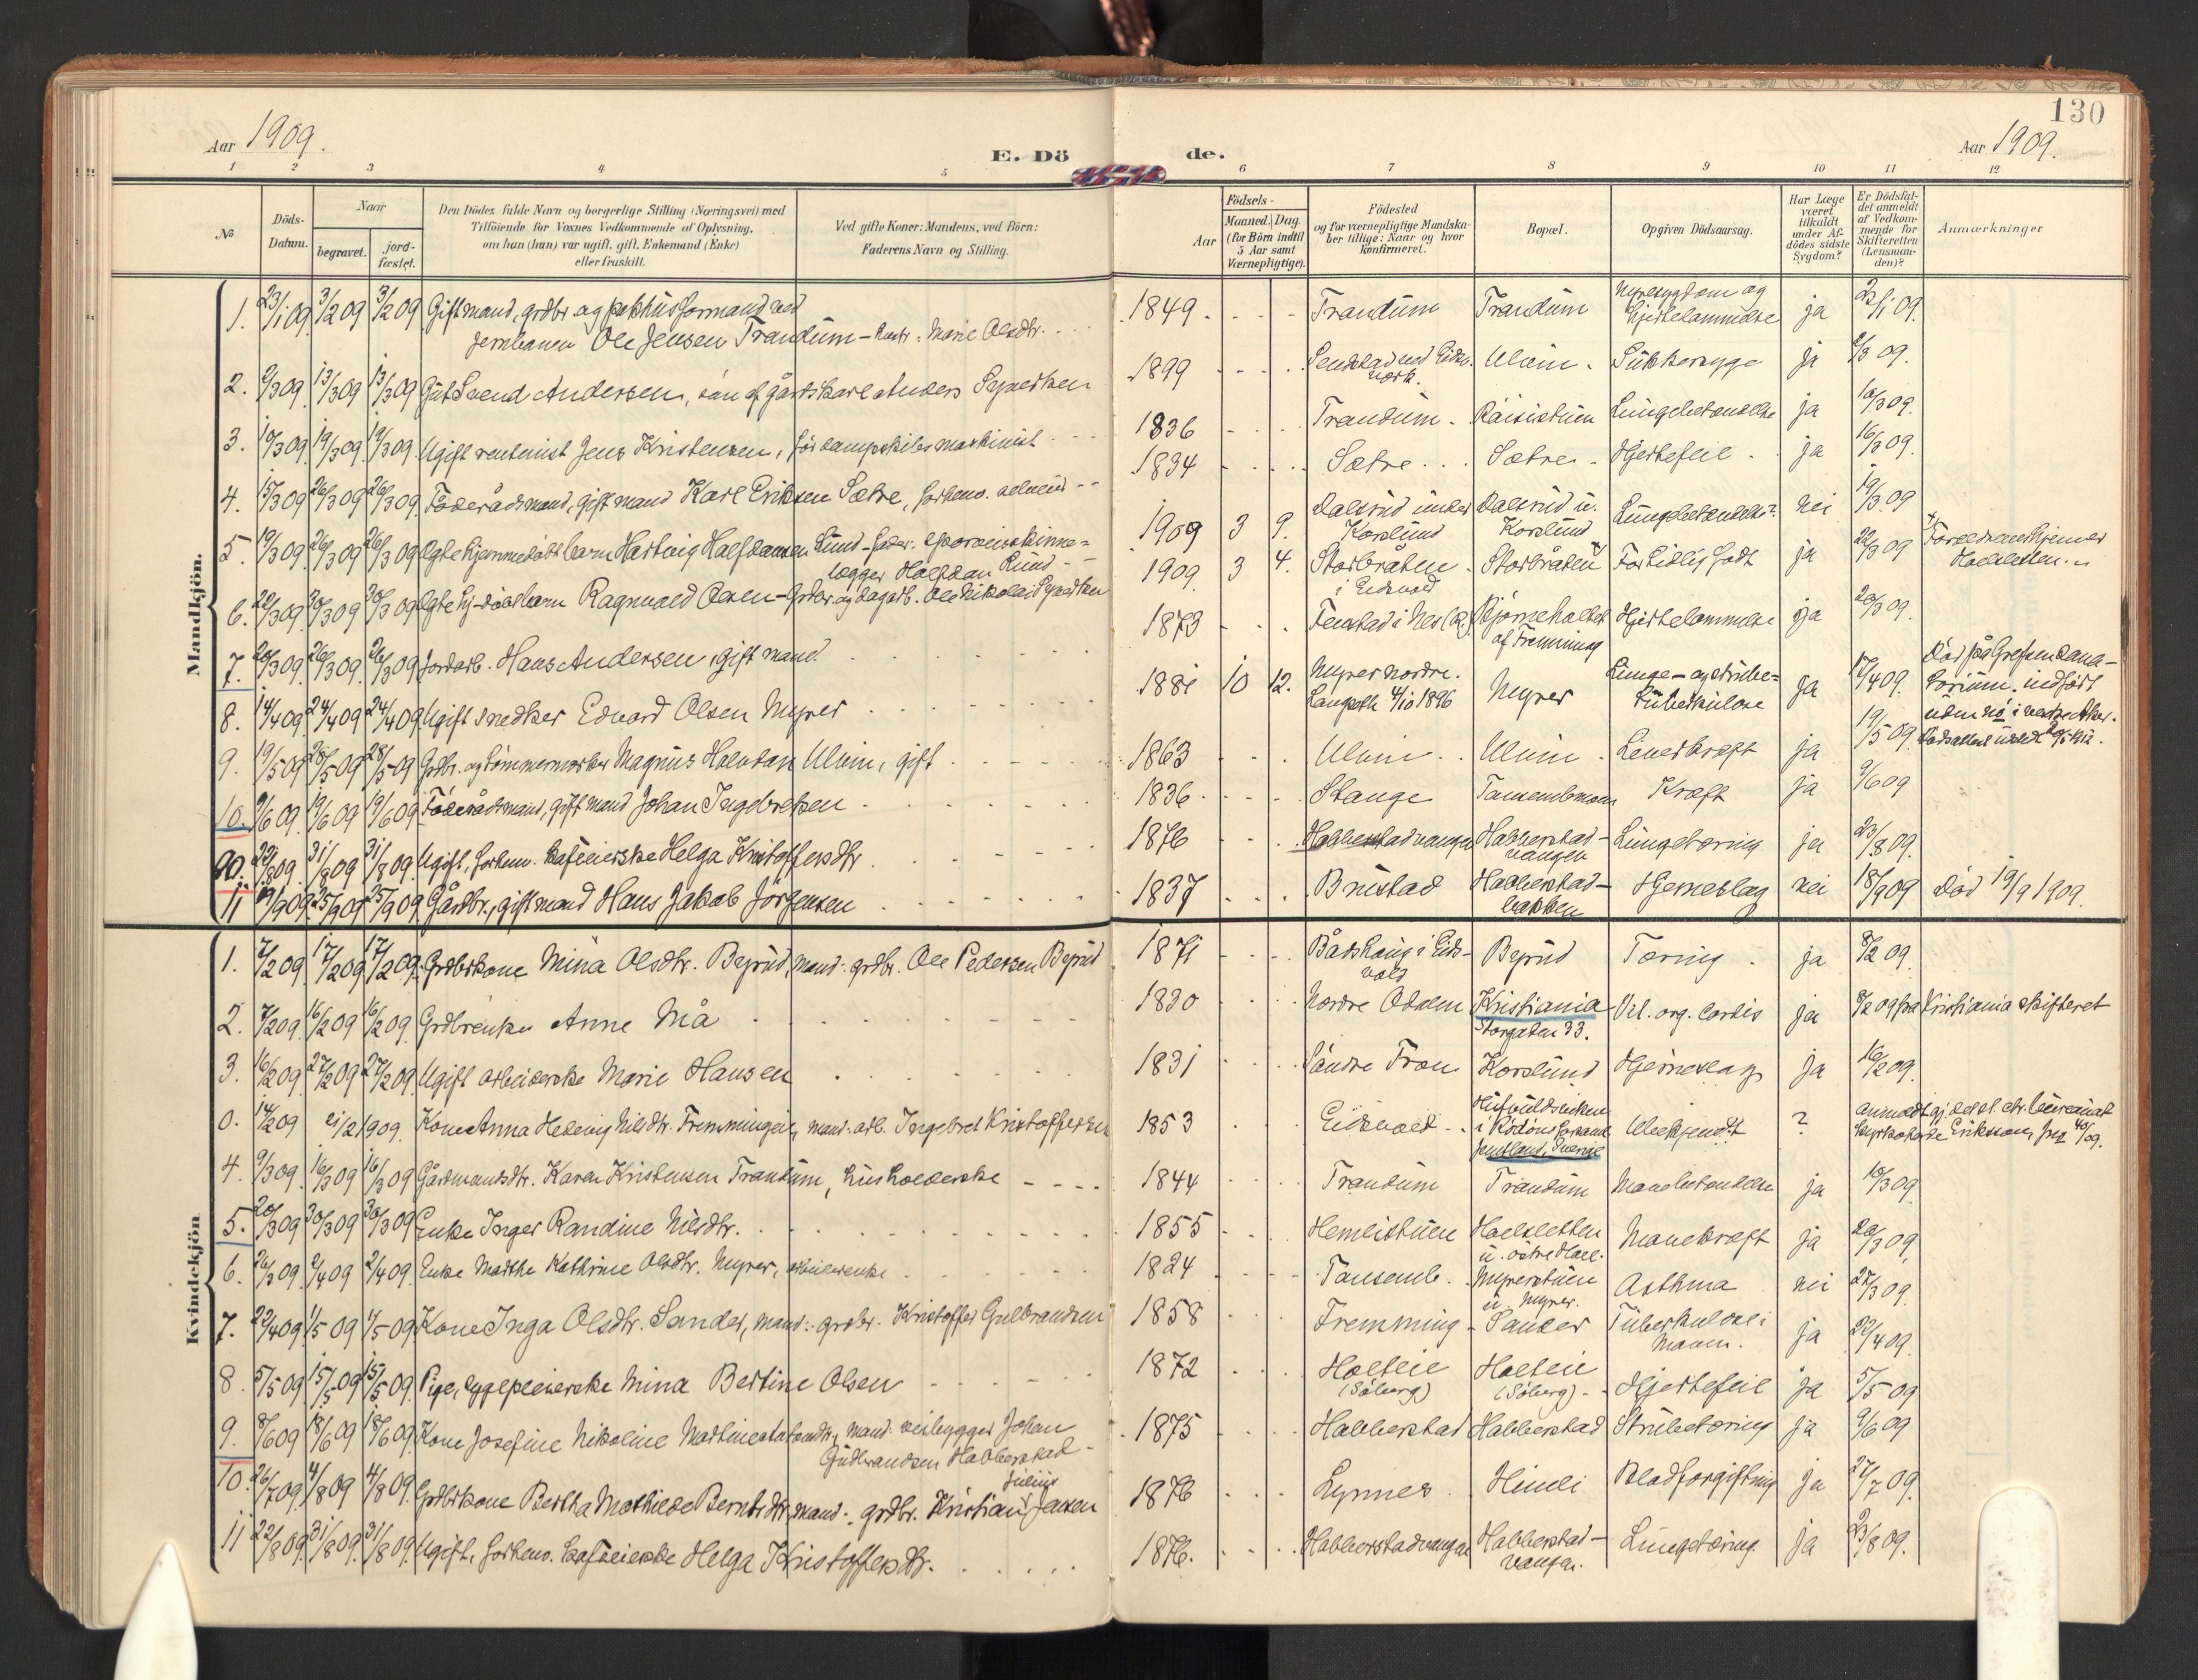 130
Aar 1909.
E. Dö
de.
Aar 1909.
1 2 3 4 5 6 7 8 9 10 11 12
No
Döds-Datum.
Naar
begravet.
jordfæstet.
Den Dödes fulde Navn og borgerlige Stilling (Næringsvei) med
Tilföiende for Voxnes Vedkommende af Oplysning,
om han (hun) var ugift, gift, Enkemand (Enke)
eller fraskilt.
Ved gifte Koner: Mandens, ved Börn:
Faderens Navn og Stilling.
Födsels-
Aar
Maaned. Dag.
(for Börn indtil
5 Aar samt
Værnepligtige).
Födested
og for værnepligtige Mandska-
ber tillige: Naar og hvor
konfirmeret.
Bopæl.
Opgiven Dödsaarsag.
Har Læge
været
tilkaldt
under Af-
dödes sidste
Sygdom?
Er Dödsfal-
det anmeldt
af Vedkom-
mende for
Skifteretten
(Lensman-
den)?
Anmærkninger
Mandkjön.
1. 23/1 09 3/2 09 3/2 09 Gift mand, grdbr. og pakhusformand ved
jernbanen Ole Jensen Trandum - Hustr: Marie Olsdtr. 1849 Trandum Trandum Nyresygdom og
Hjertelammelse ja 25/1 09.
2. 6/3 09 13/3 09 13/3 09 Gut Svend Andersen, sön af gårdskarl Anders Syversen 1899 Sendstad ved Eidsv.
værk. Ulvin Sukkersyge ja 8/3 09.
3. 10/3 09 19/3 09 19/3 09 Ugift rentenist Jens Kristensen, för dampskibsmaskinist 1836 Trandum Råisistuen Lungebetændelse ja 10/3 09.
4. 15/3 09 26/3 09 26/3 09 Föderådsmand, gift mand Karl Eriksen Sætre, forhenv. selveier 1834 Sætre Sætre Hjertefeil ja 16/3 09.
5. 19/3 09 26/3 09 26/3 09 Ægte hjemmedöbt barn Hartvig Halfdansen Lund - fader: sporveisskinne-
lægger Halfdan Lund 1909 3 9. Dalsrud under
Korslund Dalsrud u.
Korslund Lungebetændelse? nei 19/3 09
6. 22/3 09 30/3 09 30/3 09 Ægte hj-döbt barn Ragnvald Olsen - Grdbr. og dagarb. Ole Nikolai Syversen 1909 3 4. Storbråten
i Eidsvold Storbråten For tidlig födt ja 22/3 09 Forældrenes hjem er
Holsletten.
7. 20/3 09 26/3 09 26/3 09 Jordarb. Hans Andersen, gift mand 1873 Fenstad i Nes (R.) Bjørneholtet
af Fremming Hjertelammelse ja 20/3 09.
8. 14/4 09 24/4 09 24/4 09 Ugift snedker Edvard Olsen Myrer 1881 10 12. Myrer nordre.
Langseth 4/10 1896 Myrer Lunge- og strube-
tuberkulose ja 17/4 09. Död på Grefsen sana-
torium. indfört
uden No i vestre Aker.
9. 19/5 09 28/5 09 28/5 09 Grdbr. og tömmermerker Magnus Halvdan Ulvin, gift 1863 Ulvin Ulvin Leverkræft ja 19/5 09.
10. 9/6 09 19/6 09 19/6 09 Föderådsmand, gift mand Johan Ingebretsen 1836 Stange Tansembmoen Kræft ja 9/6 09
00. 22/8 09 31/8 09 31/8 09 Ugift, forhenv. kaféeierske Helga Kristoffersdtr 1876 Habberstadvangen Habberstad-
vangen Lungetæring ja 23/8 09.
11 19/9 09 25/9 09 25/9 09 Gårdbr., gift mand Hans Jakob Jörgensen 1837 Brustad Habberstad-
bakken Hjerneslag nei 18/9 09 Död 19/9 1909.
Kvindekjön
1. 7/2 09 17/2 09 17/2 09. Grdbrkone Mina Olsdtr. Byrud, Mand: grdbr. Ole Pedersen Byrud 1871 Bådshaug i Eids-
vold Byrud Tæring ja 8/2 09.
2. 7/2 09. 16/2 09 16/2 09. Grdbrenke Anne Må 1830 Nordre Odalen Kristiania
Storgaten 33. Vit. org. cordis ja 8/2 09 fra Kristiania skifteret
3. 16/2 09. 27/2 09 27/2 09. Ugift arbeiderske Marie Hansen 1831 Söndre Fron Korslund Hjerneslag ja 16/2 09.
0. 14/2 09 21/2 1909. Kone Anna Hedevig Nilsdtr. Fremmingeie, mand: arb. Ingebret Kristoffersen 1853 Eidsvold i Rödöns Forsaml
Jemtland, Sverige Ubekjendt ?
4. 9/3 09. 16/3 09 16/3 09 Gårdmandsdtr. Karen Kristensen Trandum, husholderske 1844 Trandum Trandum Mavebetændelse ja 10/3 09
5. 20/3 09 30/3 09 30/3 09 Enke Inger Randine Nilsdtr. 1855 Hemlistuen Holsletten
u. östre Hol. Mavekræft ja 20/3 09,
6. 26/3 09 2/4 09 2/4 09. Enke Marthe Kathrine Olsdtr. Myrer, arbeiderenke 1824 Tansemb. Myrerstuen
u. Myrer. Asthma nei 27/3 09.
7. 22/4 09. 1/5 09 1/5 09 Kone Inga Olsdtr. Sander, mand: grdbr. Kristoffer Gulbrandsen 1858 Fremming Sander Tuberkulose i
Maven. ja 22/4 09.
8. 5/5 09 15/5 09 15/5 09. Pige, sygepleierske Mina Bertine Olsen 1872 Holteie
(Söberg) Holteie
(Söberg) Hjertefeil ja 5/5 09
9. 8/6 09 18/6 09 18/6 09. Kone Josefine Nikoline Martine, Mand: veibygger Johan
Gudbrandsen Habberstad 1875 Habberstad Habberstad Strubetæring ja 9/6 09
10. 26/7 09. 4/8 09 4/8 09. Grdbrkone Bertha Mathilde Berntsdtr, mand: grdbr. Kristian Julius Jensen 1876 Lynnes Himli Blodforgiftning ja 27/7 09.
11 22/8 09. 31/8 09. 31/8 09. Ugift, forhenv. kaféeierske Helga Kristoffersdtr. 1876. Habberstadvangen Habberstad-
vangen. Lungetæring. ja 23/8 09.